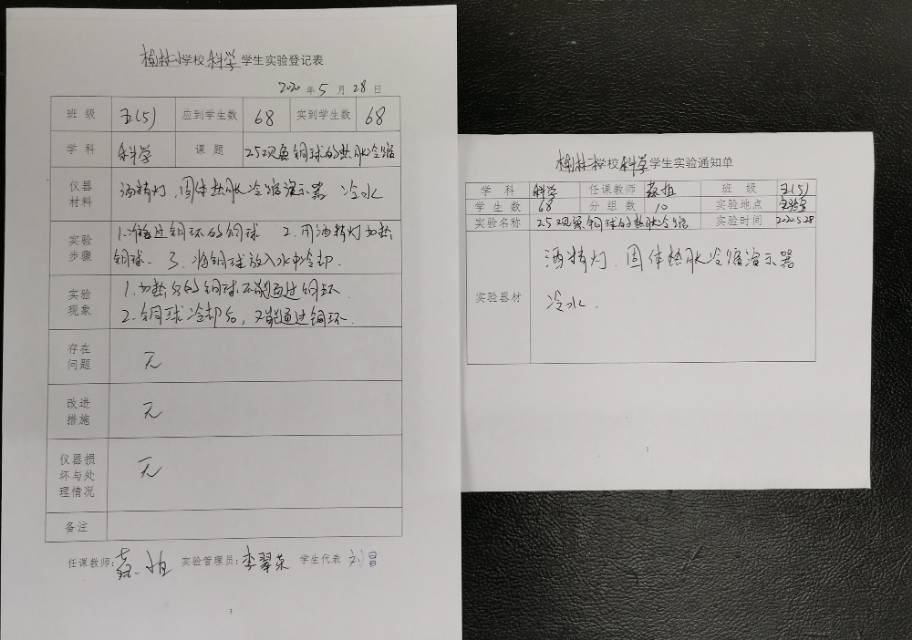 小学校科学学生实验登记表
2020年5月28日
班级 五(5) 应到学生数 68 实到学生数 68
学科 科学 课题 25观察铜球的热胀冷缩
仪器材料 酒精灯、固体热胀冷缩演示器 冷水
实验步骤 1.准备过铜环的铜球 2.用酒精灯加热
铜球. 3.将铜球放入水中冷却.
实验现象 1.加热后的铜球不能通过铜环.
2.铜球冷却后,又能通过铜环.
存在问题 无
改进措施 无
仪器损坏与处理情况 无
备注
任课教师: 实验管理员:李翠荣 学生代表 刘昌
3
学校科学学生实验通知单
学科 科学 任课教师 班级 五(5)
学生数 68 分组数 10 实验地点 实验室
实验名称 25观察铜球的热胀冷缩 实验时间 2020.5.28
实验器材 酒精灯、固体热胀冷缩演示器
冷水.